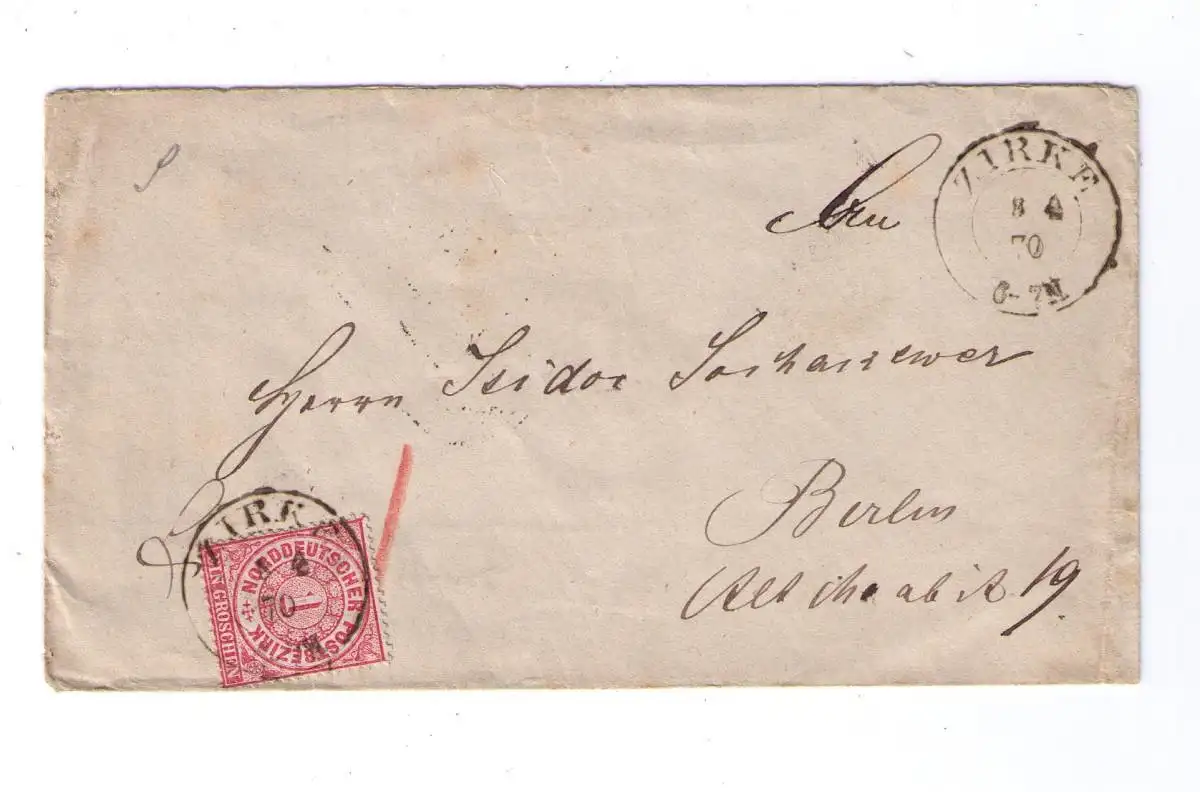 ZIRKE
8 4
70
6-7N
An
Herrn Isidor Sochaczewer
Berlin
Alt Moabit 19
ZIRKE
8 4
70
N
NORDDEUTSCHER POSTBEZIRK
1
EIN GROSCHEN